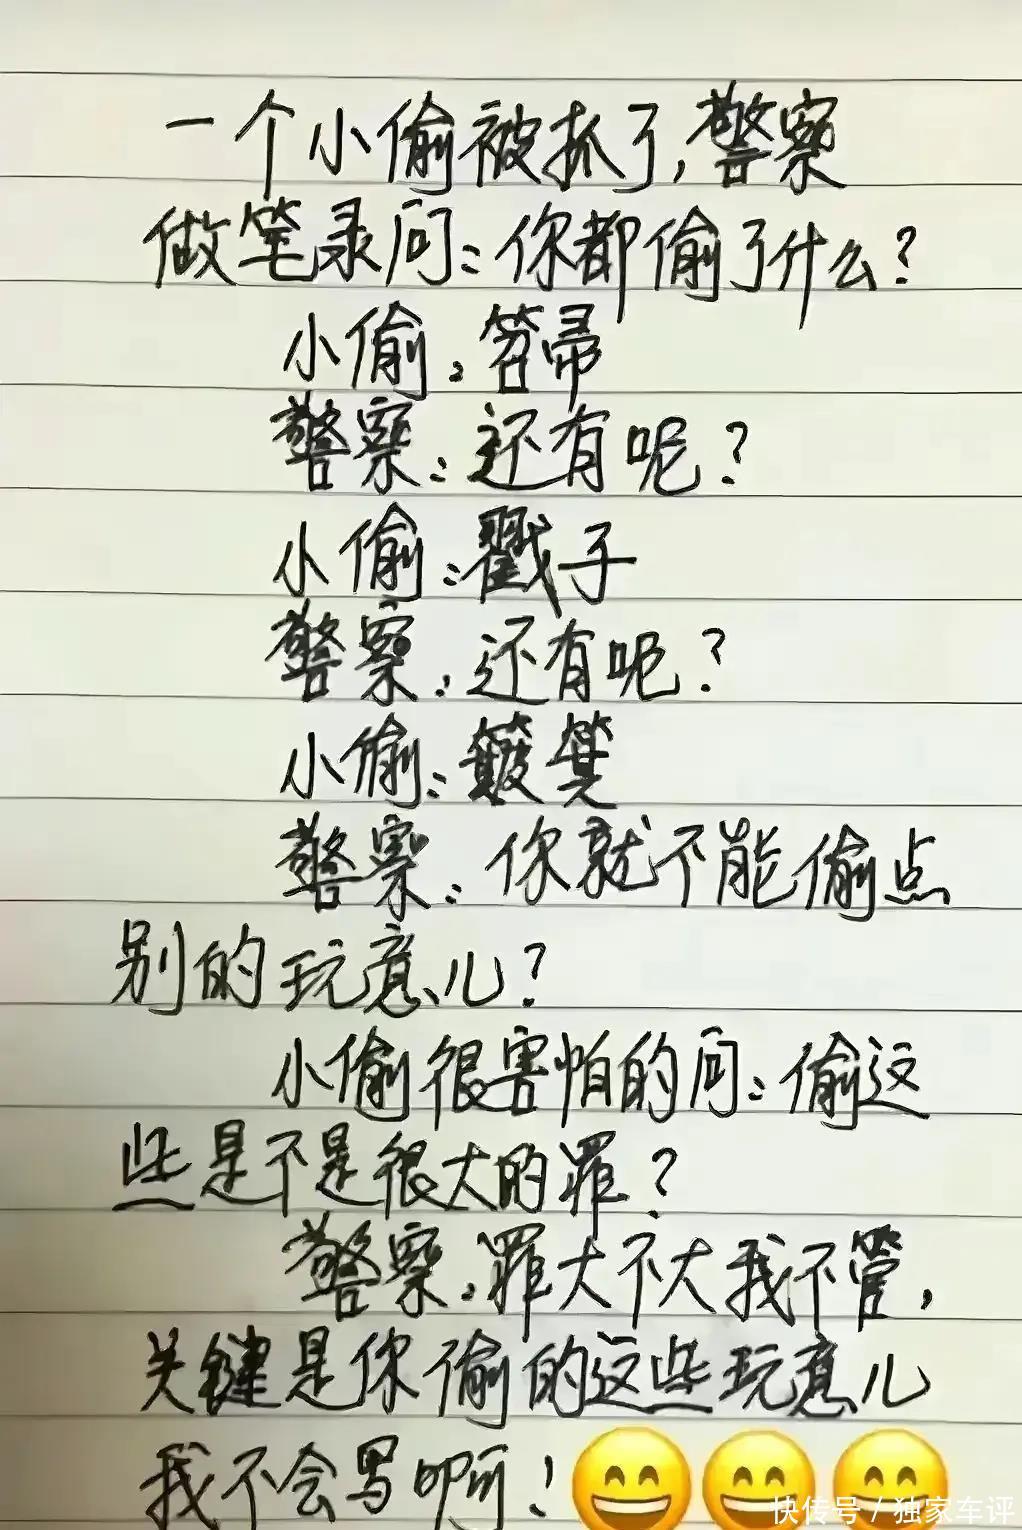 一个小偷被抓了,警察
做笔录问:你都偷了什么?
小偷:笤帚
警察:还有呢?
小偷:戳子
警察:还有呢?
小偷:簸箕
警察:你就不能偷点
别的玩意儿?
小偷很害怕的问:偷这
些是不是很大的罪?
警察:罪大不大我不管,
关键是你偷的这些玩意儿
我不会写啊!
快传号/独家车评